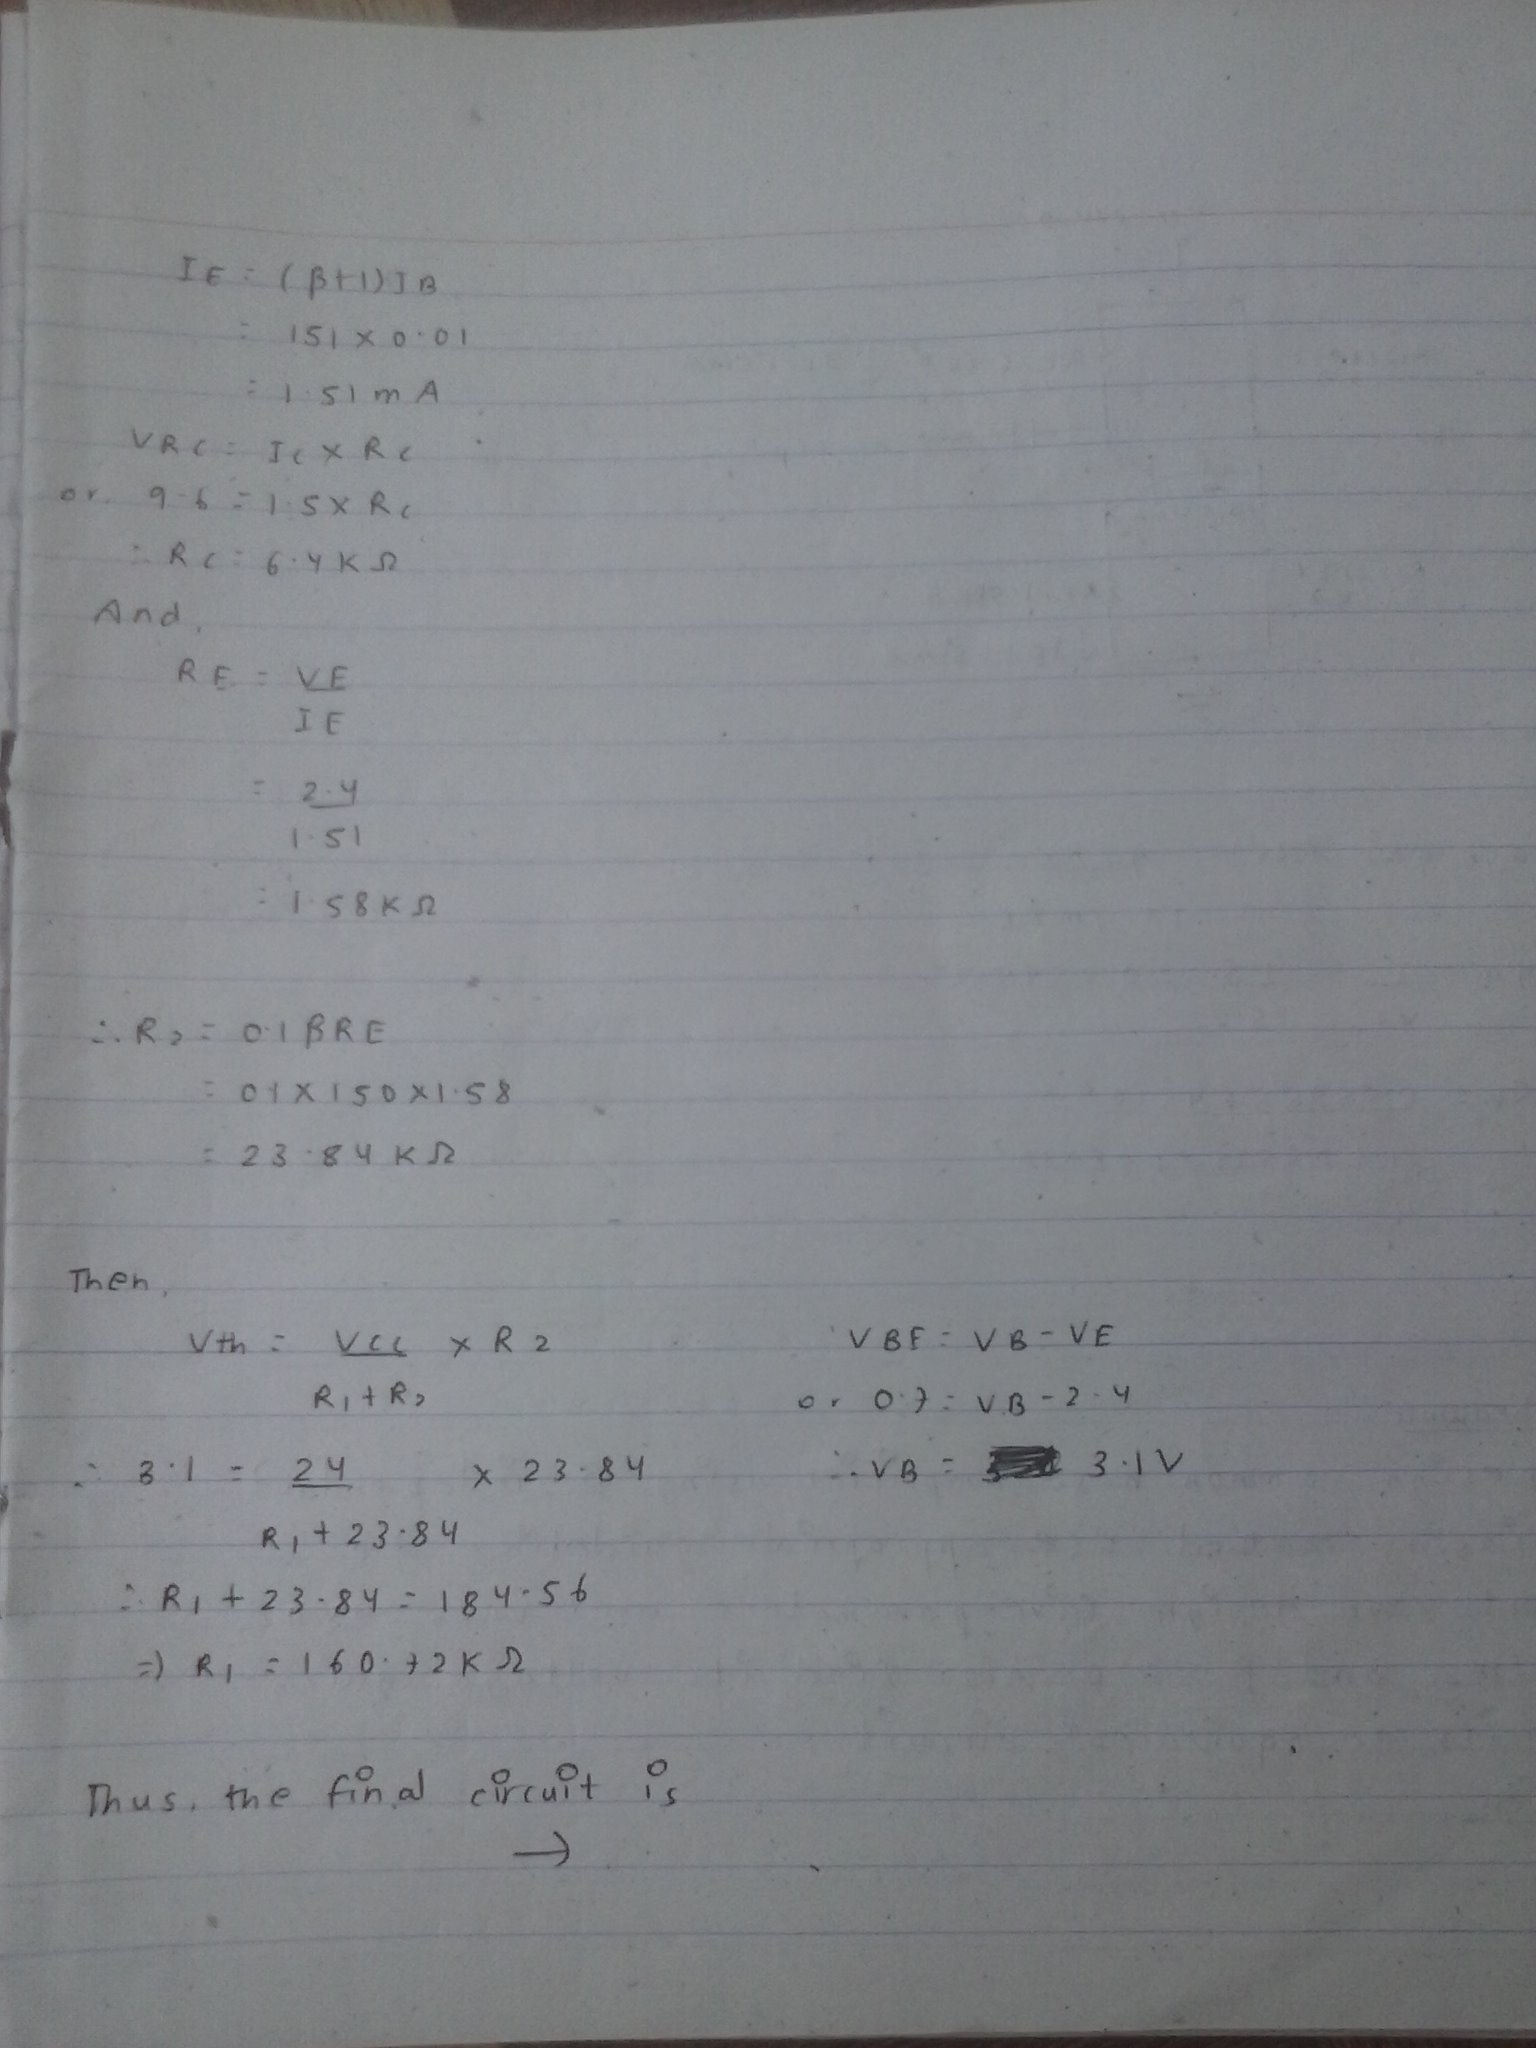 IE = (β+1)IB
= 151 x 0.01
= 1.51 mA
VRC = IC x RC
or. 9.6 = 1.5 x RC
∴ RC = 6.4 KΩ
And,
RE = VE
IE
= 2.4
1.51
= 1.58 KΩ
∴ R2 = 0.1 βRE
= 0.1 x 150 x 1.58
= 23.84 KΩ
Then,
Vth = VCC x R2
R1 + R2
∴ 3.1 = 24 x 23.84
R1 + 23.84
∴ R1 + 23.84 = 184.56
=) R1 = 160.72 KΩ
VBE = VB - VE
or 0.7 = VB - 2.4
∴ VB = 3.1 V
Thus, the final circuit is
→